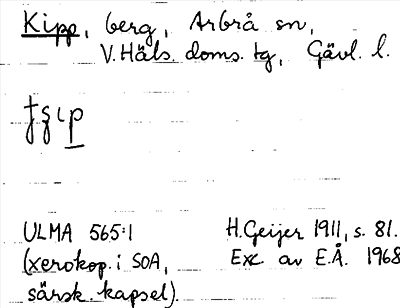 Kipp, berg, Arbrå sn,
V. Häls. doms. tg, Gävl. l.
ULMA 565:1 H. Geijer 1911, s. 81.
(xerokop. i SOA, Exc av E.Å. 1968
särsk. kapsel).